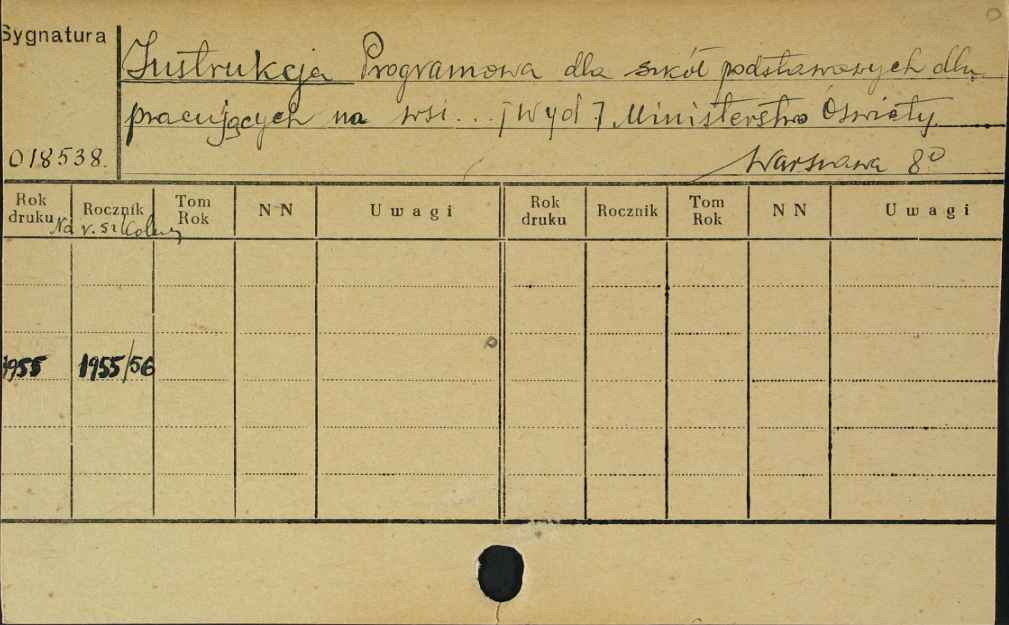 Sygnatura
Instrukcja Programowa dla szkół podstawowych dla
pracujących na wsi... [Wyd.] Ministerstwo Oświaty
018538.
Warszawa 8°
Rok druku Rocznik Tom Rok NN Uwagi Rok druku Rocznik Tom Rok NN Uwagi
Na r. szkolny
1955 1955/56